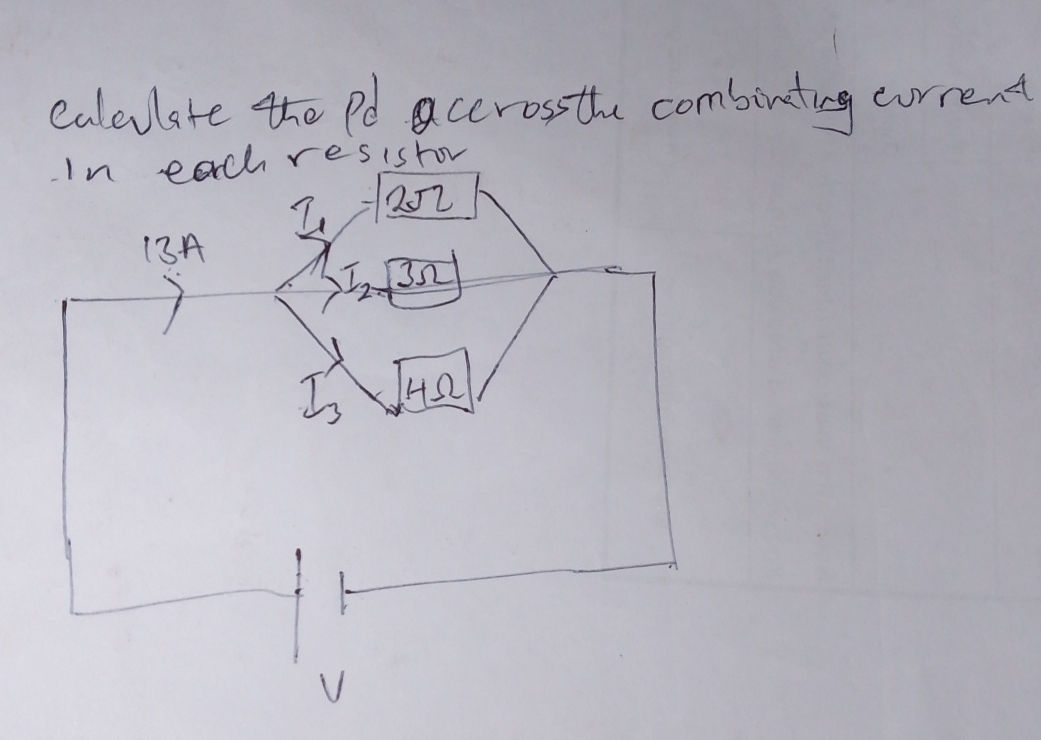 calculate the Pd accrossthe combinating current
in each resistor
I₁ 2Ω
13A
I₂ 3Ω
I₃ 4Ω
V